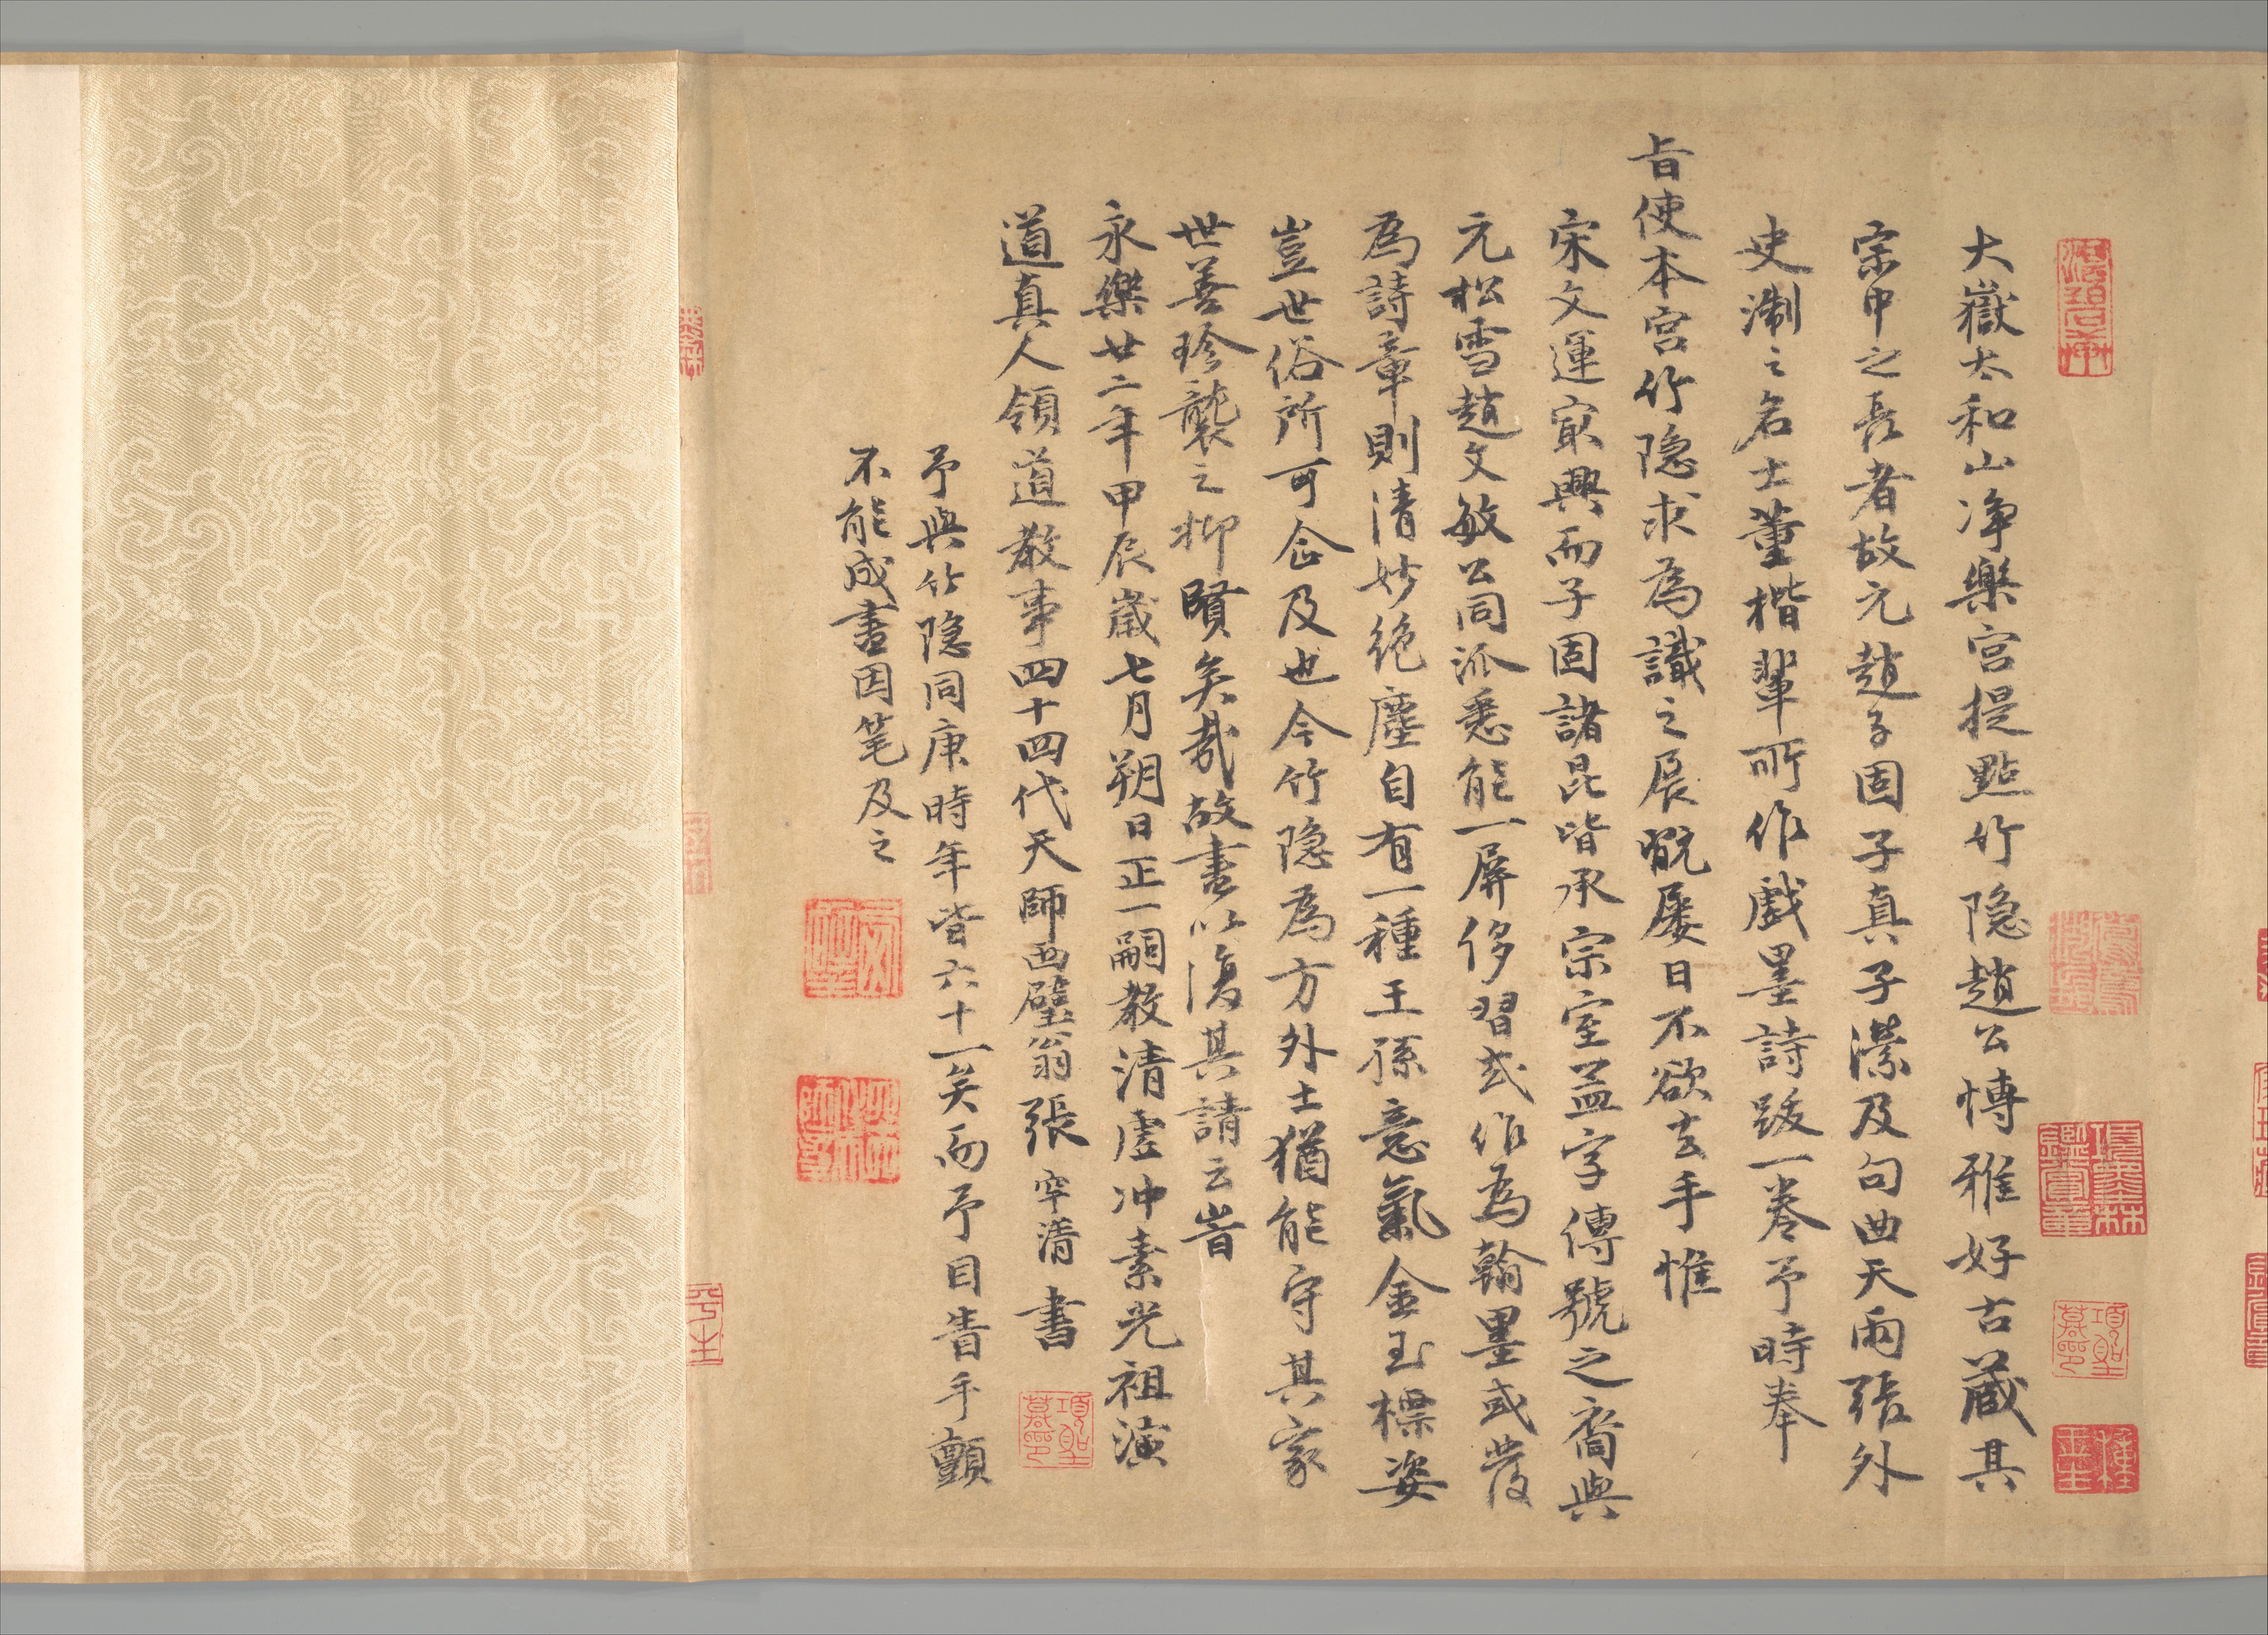 大嶽太和山净樂宮提點竹隐趙公博雅好古藏其
宗中之長者故元趙子固子真子濴及句曲天雨張外
史淛之名士董楷軰所作戲墨詩跋一卷予時奉
旨使本宮竹隐求為識之展翫屡日不欲去手惟
宋文運㝡興而子固諸昆皆承宗室盖字傳號之裔與
元松雪趙文敏公同派悉能一屏侈習或作為翰墨或發
為詩章則清妙絶塵自有一種王孫意氣金玉標姿
豈世俗所可企及也今竹隐為方外士猶能守其家
世善珍襲之抑賢矣哉故書以復其請云旹
永樂廿二年甲辰歲七月朔日正一嗣教清虛冲素光祖演
道真人領道教事四十四代天師西璧翁張宇清書
予與竹隐同庚時年皆六十一矣而予目眚手顫
不能成書因筆及之
項聖謨印
項聖謨印